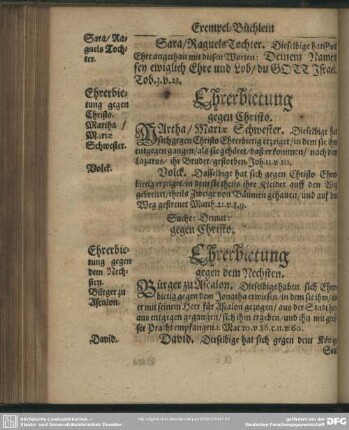 Exempel-Büchlein
Sara/ Ra-
guels Toch-
ter.
Sara/ Raguels Tochter. Dieselbige hat Gott
Ehre angethan mit diesen Worten: Deinem Namen
sey ewiglich Ehre und Lob/ du GOTT Israel.
Tob. 3. v. 23.
Ehrerbie-
tung gegen
Christo.
Martha /
Mariæ
Schwester.
Ehrerbietung
gegen Christo.
MArtha/ Mariæ Schwester. Dieselbige hat
sich gegen Christo Ehrerbietig erzeiget/ in dem sie ihm
entgegen gangen/ als sie gehöret/ daß er kommen/ nach dem
Lazarus/ ihr Bruder/ gestorben Joh. 11. v. 20.
Volck.
Volck. Dasselbige hat sich gegen Christo Ehrer-
bietig erzeiget/ in dem sie theils ihre Kleider auff den Weg
gebreitet/ theils Zweige von Bäumen gehauen/ und auf den
Weg gestreuet Matth. 21. v. 8. 9.
Suche: Demut:
gegen Christo.
Ehrerbie-
tung gegen
dem Nech-
sten.
Bürger zu
Ascalon.
Ehrerbietung
gegen dem Nechsten.
Bürger zu Ascalon. Dieselbige haben sich Ehrer-
bietig gegen dem Jonatha erwiesen/ in dem sie ihm/ als
er mit seinem Heer für Ascalon gezogen/ aus der Stadt her-
aus entgegen gegangen/ sich ihm ergeben/ und ihn mit gros-
ser Pracht empfangen 1. Mac. 10. v. 86. c. 11. v. 60.
David.
David. Derselbige hat sich gegen dem König